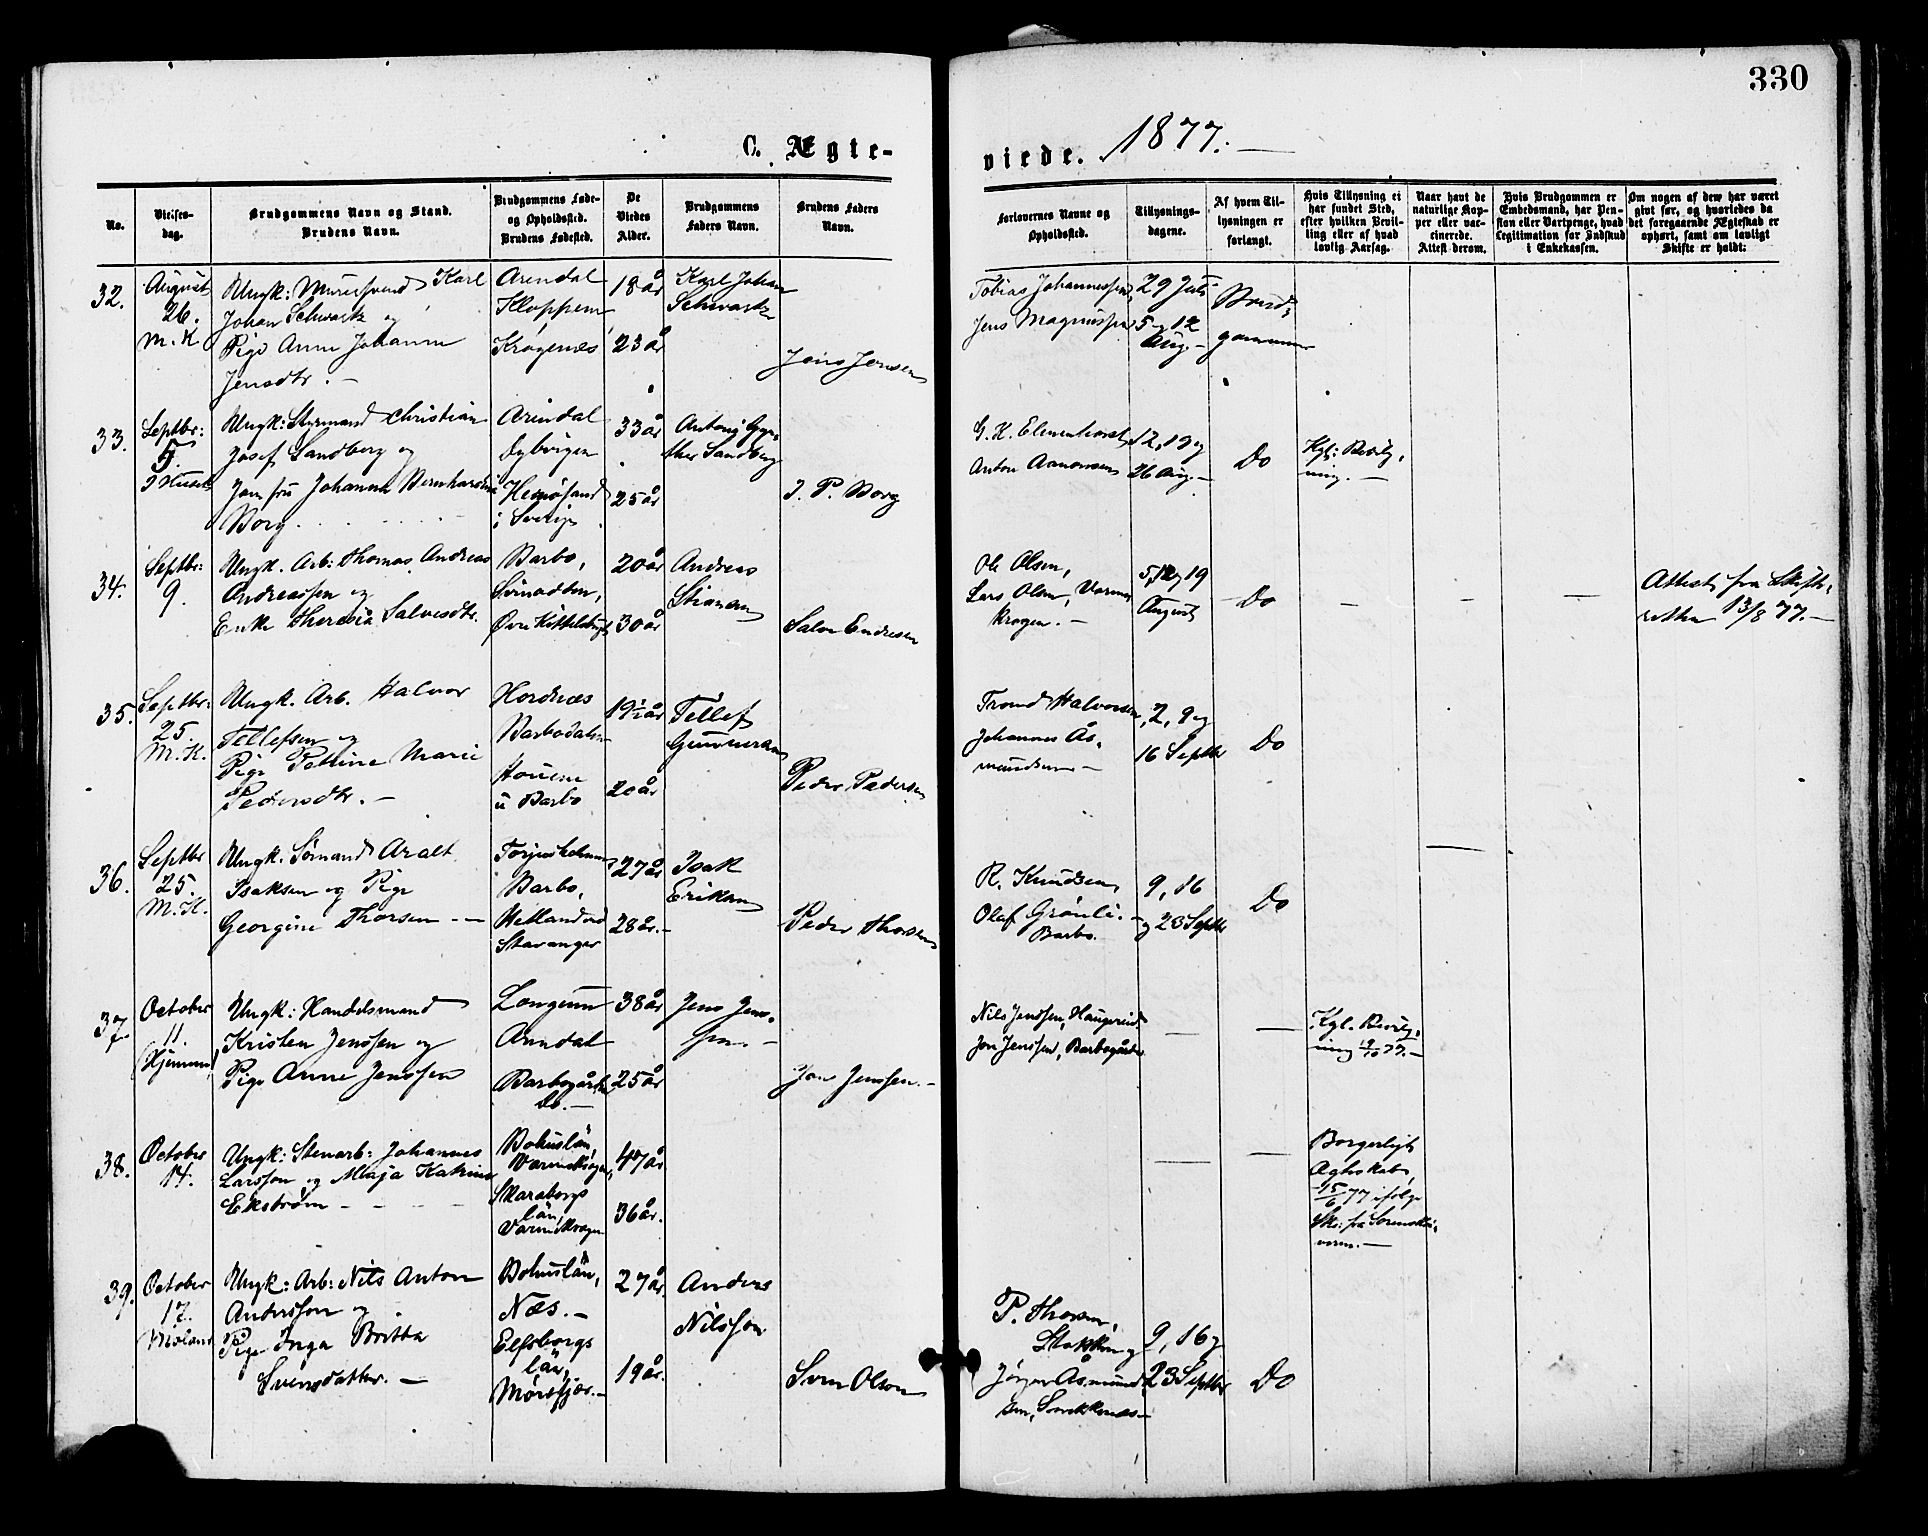 330
C. Ægte-
viede. 1877.
No.
Vielses-
dag.
Brudgommens Navn og Stand.
Brudens Navn.
Brudgommens Føde-
og Opholdssted.
Brudens Fødested.
De
Viedes
Alder.
Brudgommens
Faders Navn.
Brudens Faders
Navn.
Forlovernes Navne og
Opholdssted.
Tillysnings-
dagene.
Af hvem Til-
lysningen er
forlangt.
Hvis Tillysning ei
har fundet Sted,
efter hvilken Bevil-
ling eller af hvad
lovlig Aarsag.
Naar havt de
naturlige Kop-
per eller vac-
cinerede.
Attest derom.
Hvis Brudgommen er
Embedsmand, har Pen-
sion eller Vartpenge, hvad
Legitimation for Indskud
i Enkekassen.
Om nogen af dem har været
gift før, og hvorledes da
det foregaaende Ægteskab er
ophørt, samt om lovligt
Skifte er holdt:
32.
August
26.
M. K
Ungk: Murersvend Karl
Johan Schwartz og
Pige Anne Johanne
Jensdtr. -
Arendal
Kloppene
Krøgenæs
18 år
23 år
Karl Johan
Schwartz
Jens Jensen
Tobias Johannessen,
Jens Magnussen
29 Juli
5 og 12
Aug. -
Brud-
gommen
33.
Septbr:
5.
I Huset
Ungk: Styrmand Christian
Josef Sandberg og
Jomfru Johanna Bernhardina
Borg.
Arendal
Dybvigen
Hernösand
i Sverig
33 år
25 år
Antonj Gyn-
ther Sandberg
J. P. Borg
Anton Aanonsen
12, 19 og
26 Aug. -
Do
Kgl: Bevilg-
ning. -
34.
Septbr:
9.
Ungk. Arb: Thomas Andreas
Andreassen og
Enke Theresia Salvesdtr.
Barbo,
20 år
30 år
Andreas
Salve Endresen
Ole Olsen,
Lars Olsen,
krogen. -
5, 12 og 19
August
Do
Attest fra Skifte-
retten 13/8 77. -
35.
Septbr:
25.
M. K.
Ungk. Arb. Halvor
Tellefsen og
Pige Petrine Marie
Pedersdtr. -
Hordnæs
Barbodalen
Houene
i Barbo
19½ år
20 år
Tellef
Gunnersen
Peder Pedersen
Trond Halvorsen,
Johannes Ås-
mundsen -
2, 9 og
16 Septbr
Do
36.
Septbr
25.
M. K.
Ungk. Sømand Aralt
Isaksen og Pige
Georgine Thorsen -
Torjusholmen
Barbo,
Hetlandsred
Stavanger
27 år
28 år. -
Isak
Eriksen
Peder Thorsen
R. Knudsen,
Olaf Grönli. -
Barbo.
9, 16
og 23 Septbr
Do
37
October
11.
(Hjemme)
Ungk: Handelsmand
Kristen Jenssen og
Pige Anne Jenssen
Longum
Arendal
Barbogården
do. -
38 år
25 år
Jens Jens-
sen. -
Jon Jenssen. -
Nils Jenssen, Haugereid
Jon Jenssen, Barbogården
Kgl. Bevilg-
ning 9/10 77. -
38.
October
14.
Ungk: Stenarb: Johannes
Larsson og Maja Katrina
Ekström -
Bohuslän
Skaraborgs
län,
47 år
36 år.
Borgerligt
Ægteskab
15/6 77 ifølge
Skr: fra Sorenskri-
veren. -
39.
October
17.
Ungk: Arb: Nils Anton
Andersson og
Pige Inga Britta
Svensdatter. -
Bohuslän,
Næs. -
Elfsborgs
län,
27 år.
19 år.
Anders
Nilsson
Sven Olson
P. Thorsen,
Stokken og
Jørgen Åsmund-
sen,
9, 16 og
23 Septbr
Do